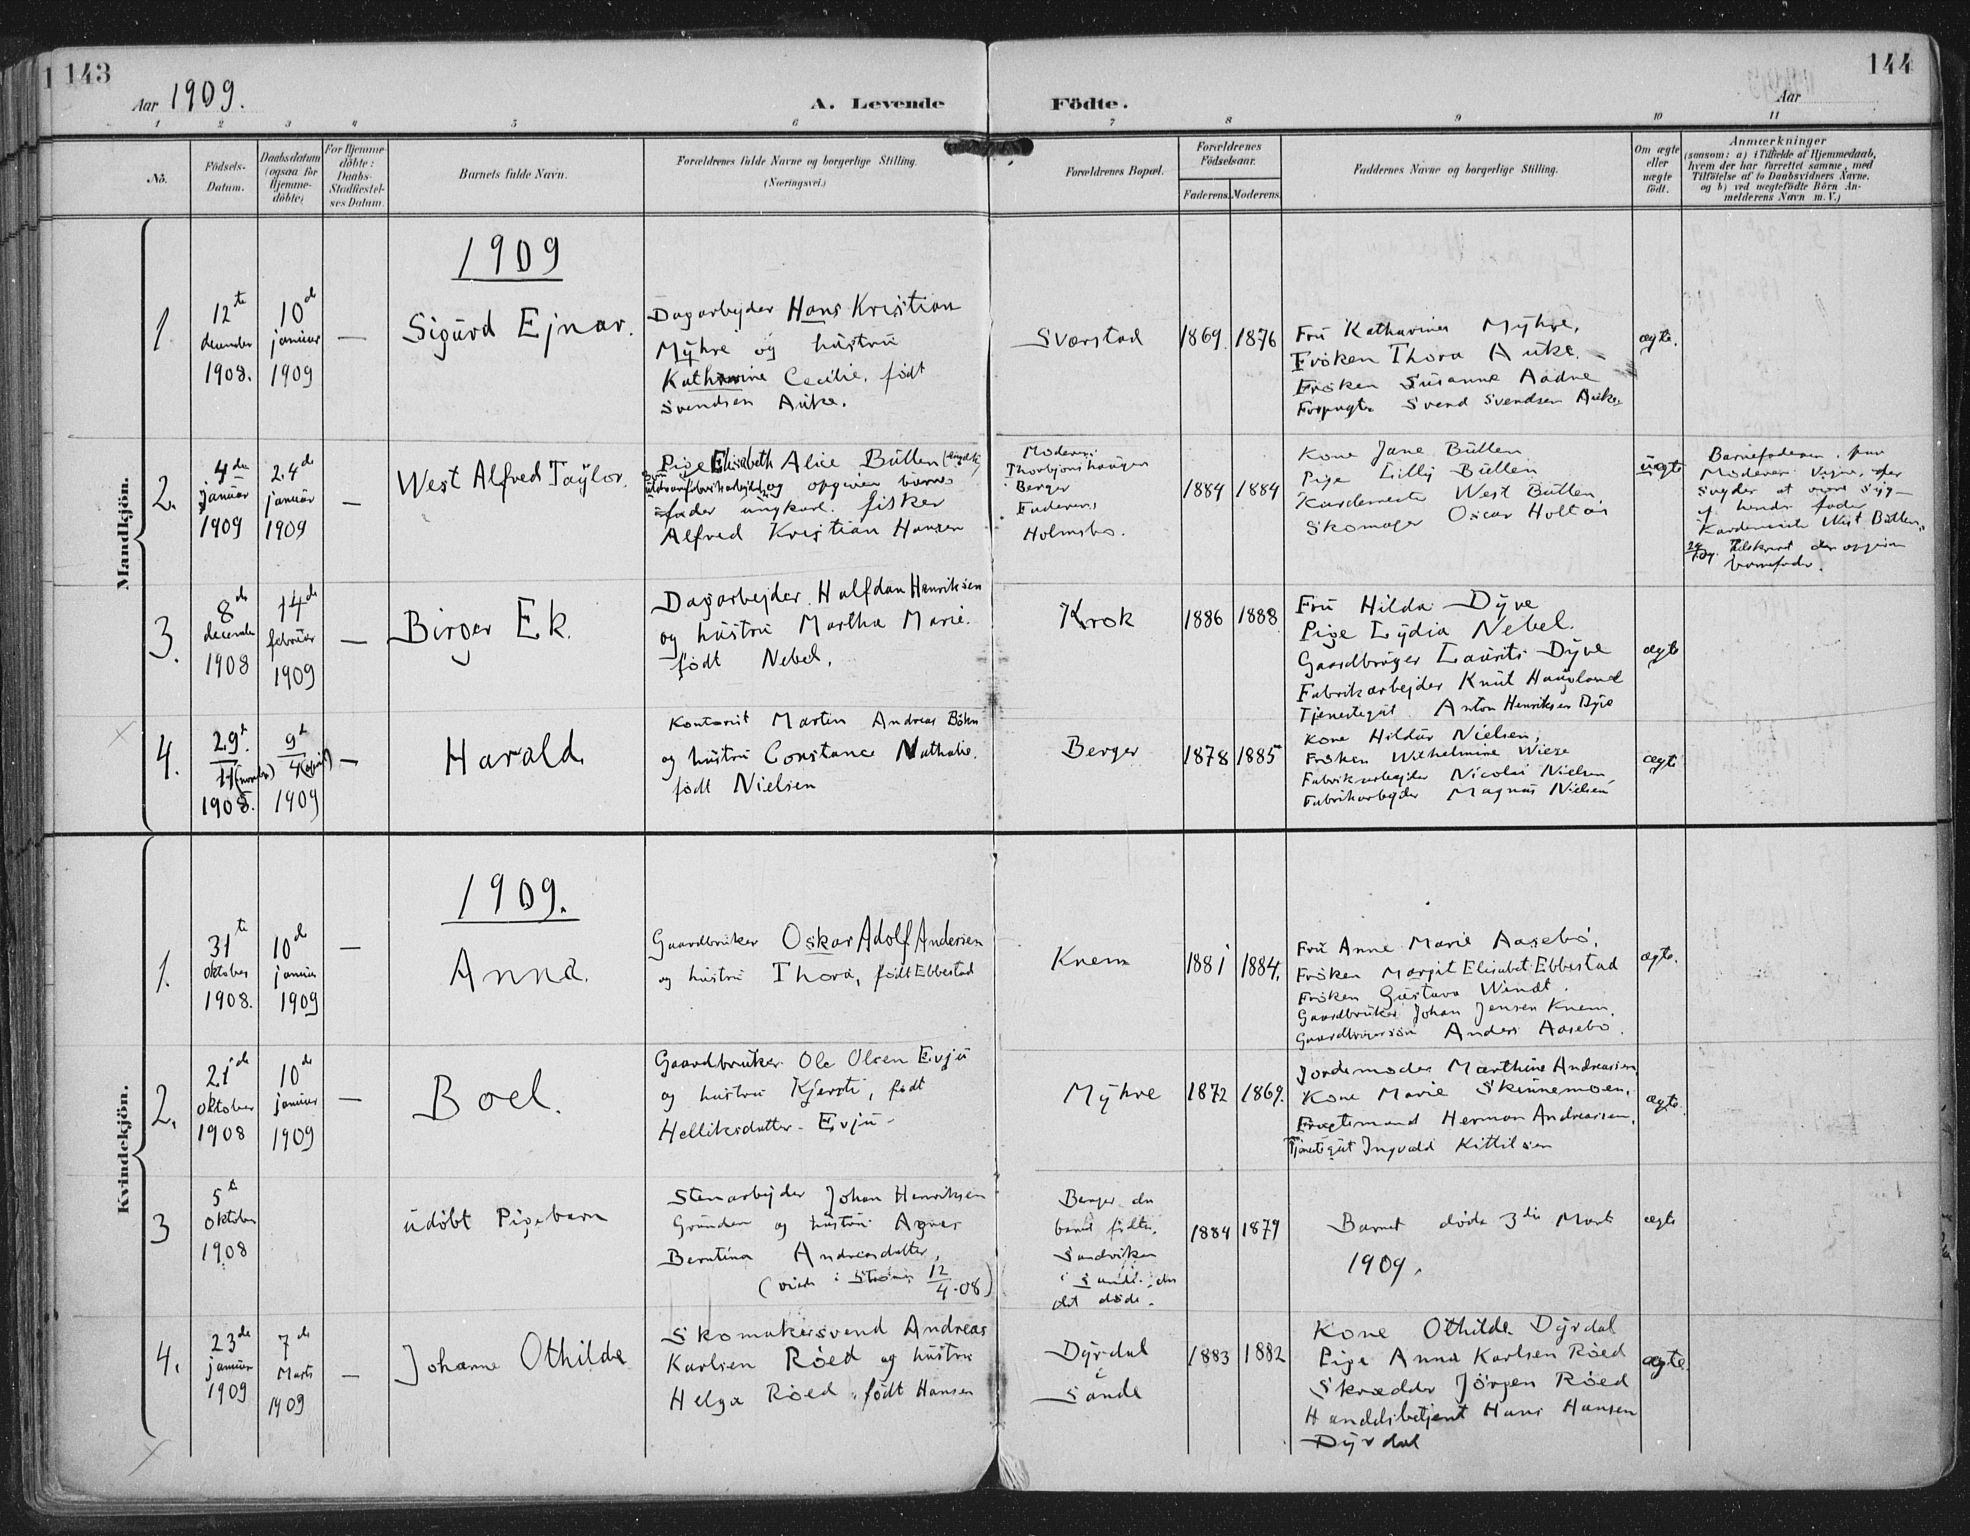 143
Aar 1909.
A. Levende Födte.
144
Aar
1 2 3 4 5 6 7 8 9 10 11
No.
Födsels-
Datum.
Daabsdatum
(ogsaa for
Hjemme-
döbte)
For Hjemme-
döbte:
Daabs-
Stadfæstel-
ses Datum.
Barnets fulde Navn.
Forældrenes fulde Navne og borgerlige Stilling.
(Næringsvei.)
Forældrenes Bopæl.
Forældrenes
Födselsaar.
Faderens. Moderens.
Faddernes Navne og borgerlige Stilling.
Om ægte
eller
uægte
födt.
Anmærkninger
(saasom: a) i Tilfælde af Hjemmedaab,
hvem der har forrettet samme, med
Tilföielse af to Daabsvidners Navne,
og b) ved uægtefödte Börn An-
melderens Navn m. V.)
Mandkjön.
1909
1
12te
december
1908.
10de
januar
1909
—
Sigurd Ejnar.
Dagarbejder Hans Kristian
Myhre og hustru
Kathrine Cecilie, født
Svendsen Auke.
Sværstad
1869. 1876
Fru Katharina Myhre.
Frøken Thora Auke.
Frøken Susanne Aadne
Forpagter Svend Svendsen Auke
ægte.
2.
4de
januar
1909
24de
januar
1909
—
West Alfred Taylor.
Pige Elisabeth Alice Bütten
og opgiven barne-
fader ungkarl fisker
Alfred Kristian Hansen
Moderens
Thorbjørnshaugen
Berger
Faderens
Holmsbo.
1884 1884
Kone Jane Bütten
Pige Lilly Bütten
Kardemester West Bütten.
Skomager Oscar Holtan
uægte
Barnefaderen. paa
Moderens Vegne, der
siges at være syg
af hendes fader
Kardemester West Bütten.
barnefader.
3.
8de
december
1908
14de
februar
1909
—
Birger Ek.
Dagarbejder Halfdan Henriksen
og hustru Martha Marie.
født Nebel.
Krok
1886 1888
Fru Hilda Dyve
Pige Lydia Nebel.
Gaardbruger Laurits Dyve
Fabrikarbejder Knut Haugland
Tjenestegut Anton Henriksen Dyve
ægte
4.
29de
11 (november)
1908.
9de
4 (april)
1909
—
Harald.
Kontorist Martin Andreas Böhn
og hustru Constance Nathalie.
født Nielsen
Berger
1878 1885
Kone Hildur Nielsen,
Frøken Wilhelmine Wiese
Fabrikarbejder Nicolai Nielsen,
Fabrikarbejder Magnus Nielsen
ægte
Kvindekjön.
1909.
1.
31te
oktober
1908.
10de
januar
1909
—
Anna.
Gaardbruker Oskar Adolf Andersen
og hustru Thora, født Ebbestad
Knem
1881 1884.
Fru Anne Marie Aasebø.
Frøken Margit Elisabet Ebbestad
Frøken Gustava Windt.
Gaardbruker Johan Jensen Knem.
Gaardbrugersøn Anders Aasebø.
ægte.
2.
21de
oktober
1908
10de
januar
1909
—
Boel.
Gaardbruker Ole Olsen Evju
og hustru Kjersti, født
Helliksdatter Evju
Myhre
1872 1869.
Jordemoder Marthine Andreassen
Kone Marie Skinnemoen.
Fragtemand Herman Andreassen.
Tjenestegut Ingvald Kittilsen
ægte.
3
5te
oktober
1908
udøbt Pigebarn
Stenarbejder Johan Henriksen
Grunden og hustru Agnes
Berntina Andreasdatter,
(viede i Strømm 12/4-08)
Berger da
barnet fødtes.
Sandviken
i Sande, da
det døde.
1884 1879
Barnet døde 3die Marts
1909.
ægte
4.
23de
januar
1909
7de
Marts
1909
—
Johanne Othilde
Skomakersvend Andreas
Karlsen Røed og hustru
Helga Røed, født Hansen
Dyrdal
i
Sande
1883 1882
Kone Othilde Dyrdal
Pige Anna Karlsen Røed
Skrædder Jörgen Røed
Handelsbetjent Hans Hansen
Dyrdal
ægte.